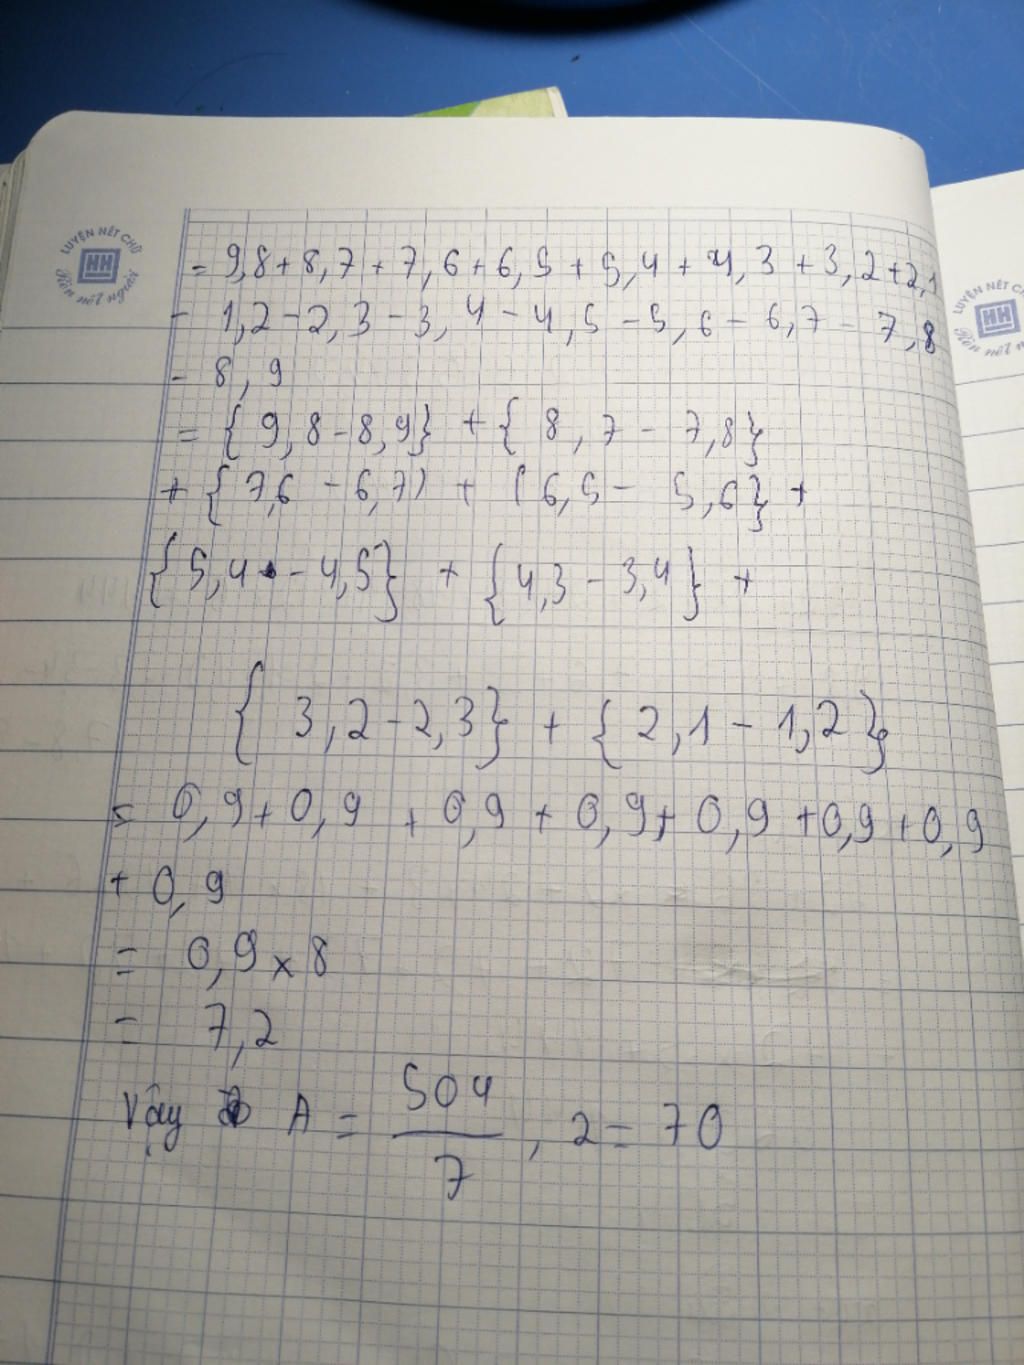 LUYỆN NÉT CHỮ
HH
Rèn nết người
= 9,8 + 8,7 + 7,6 + 6,5 + 5,4 + 4,3 + 3,2 + 2,1
- 1,2 - 2,3 - 3,4 - 4,5 - 5,6 - 6,7 - 7,8
- 8,9
= {9,8 - 8,9} + {8,7 - 7,8}
+ {7,6 - 6,7) + (6,5 - 5,6} +
{5,4 - 4,5} + {4,3 - 3,4} +
{3,2 - 2,3} + {2,1 - 1,2}
= 0,9 + 0,9 + 0,9 + 0,9 + 0,9 + 0,9 + 0,9
+ 0,9
= 0,9 x 8
= 7,2
Vậy A = 504/7,2 = 70
LUYỆN NÉT CH
HH
Rèn nết n